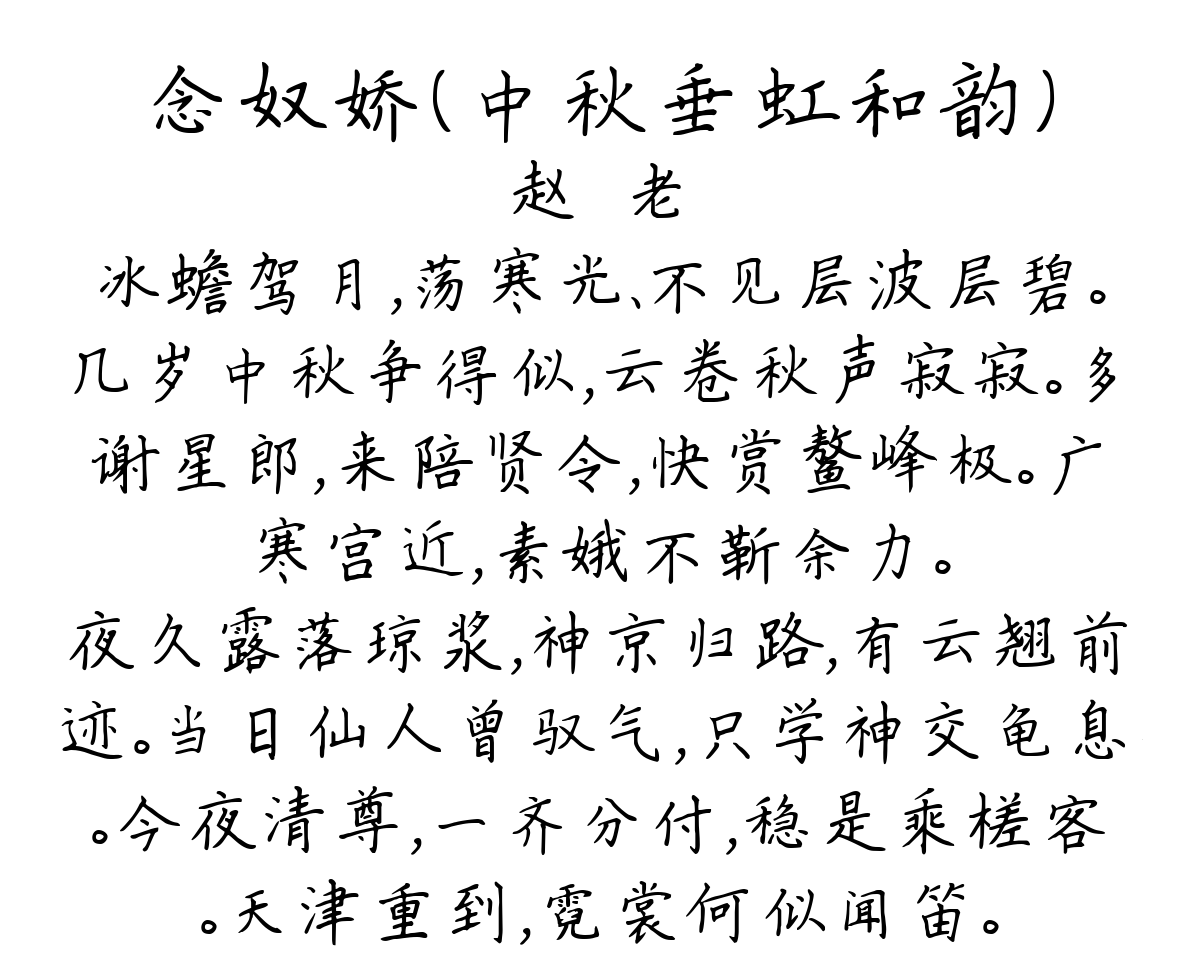 念奴娇(中秋垂虹和韵)
赵 老
冰蟾驾月,荡寒光、不见层波层碧。
几岁中秋争得似,云卷秋声寂寂。多
谢星郎,来陪贤令,快赏鳌峰极。广
寒宫近,素娥不靳余力。
夜久露落琼浆,神京归路,有云翘前
迹。当日仙人曾驭气,只学神交龟息
。今夜清尊,一齐分付,稳是乘槎客
。天津重到,霓裳何似闻笛。